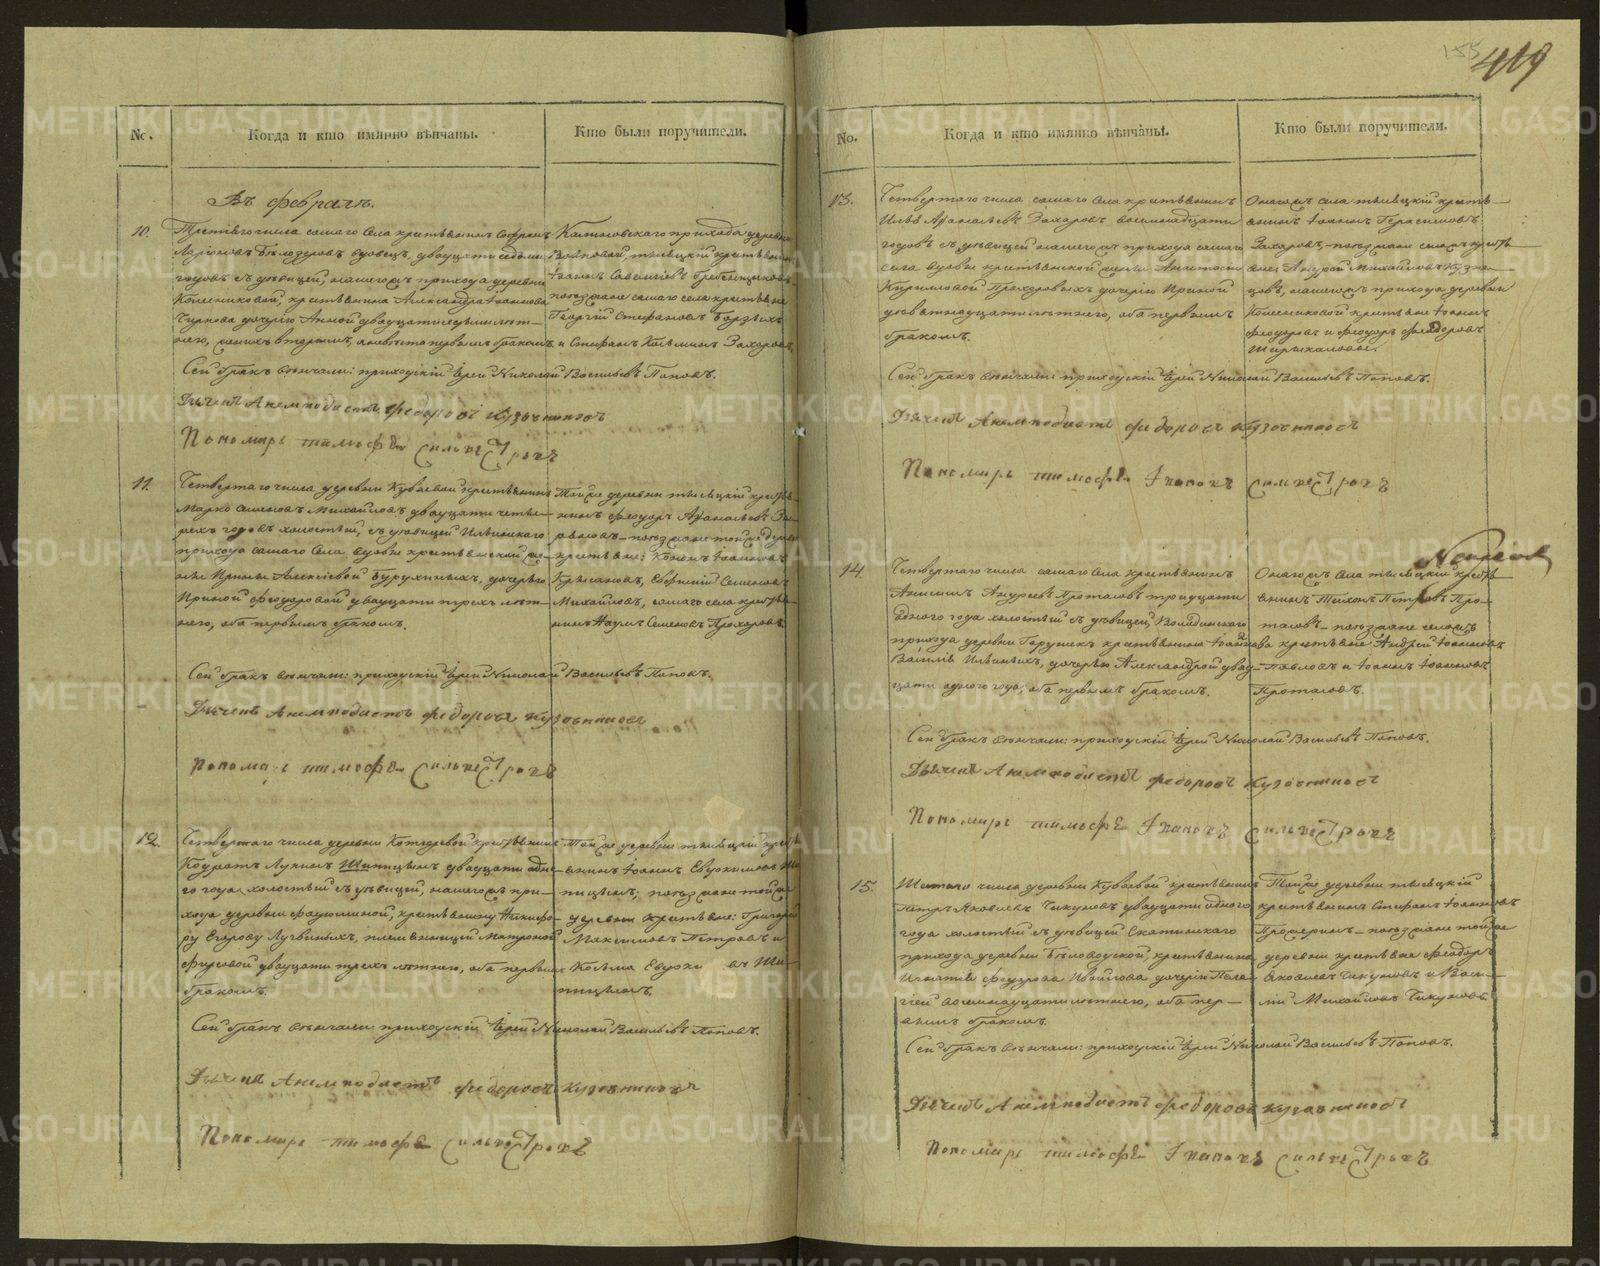 155
419
№.
Когда и кто имянно вѣнчаны.
Кто были поручители.
Въ февралѣ.
10.
Третьяго числа самаго села крестьянинъ
Ларіоновъ Бѣлозеровъ вдовецъ, двадцати седьми
годовъ съ дѣвицей, нашегожъ прихода деревни
Колесниковой, крестьянина Александра Іоаннова
Чиркова дочерію Анной двадцатиседьмилѣт-
нею, первымъ бракомъ,
Калиновскаго прихода деревни
крестьянинъ
Іоаннъ Савельевъ Гребенщиковъ,
поѣзжане самаго села крестьяне
Георгій Стефановъ
и Стефанъ Козьминъ Захаровъ.
Сей бракъ вѣнчали: приходскій Іерей Николай Васильевъ Поповъ.
Дьячекъ Анемподистъ федоровъ Кузовниковъ
Пономарь тимофеи Сильвестровъ
11.
Четвертаго числа деревни Куваевой крестьянинъ
Марко Семеновъ Михайловъ двадцати четы-
рехъ годовъ холостый, съ дѣвицей Ильинскаго
прихода самаго села вдовы крестьянской же-
ны Ирины Алексіевой Бурухиныхъ, дочерью
Ириной Феодоровой двадцати трехъ лѣт-
нею, оба первымъ бракомъ.
Тойже деревни
нинъ Феодоръ Афанасьевъ
поѣзжане тойже деревни
крестьяне: Кононъ Іоанновъ
Евфимій Семеновъ
Михайловъ, самаго села крестья-
нинъ Наумъ Семеновъ Прохоровъ.
Сей бракъ вѣнчали: приходскій Іерей Николай Васильевъ Поповъ.
Дьячекъ Анемподистъ федоровъ Кузовниковъ
Пономарь тимофеи Сильвестровъ
12.
Четвертаго числа деревни крестьянинъ
Кодратъ Лукинъ Шипицынъ двадцати одно-
го года, холостый съ дѣвицей, нашегожъ при-
хода деревни крестьянину Никифо-
ру Егорову Лугвиныхъ, племянницей Матроной
Фирсовой двадцати трехъ лѣтнею, оба первымъ
бракомъ.
Тойже деревни
Іоаннъ Евдокимовъ Ши-
пицынъ; поѣзжане тойже
деревни крестьяне: Григорій
Максимовъ Петровъ и
Козьма Евдоки въ Ши-
пицынъ.
Сей бракъ вѣнчали приходскій Іерей Николай Васильевъ Поповъ.
Дьячекъ Анемподистъ федоровъ Кузовниковъ
Пономарь тимофеи Сильвестровъ
№.
Когда и кто имянно вѣнчаны.
Кто были поручители.
13.
Четвертаго числа самаго села крестьянинъ
Илья Афанасьевъ Захаровъ восемнадцати
годовъ съ дѣвицей нашегожъ прихода самаго
села вдовы крестьянской жены Анастасіи
Кирилловой Прохоровыхъ дочерію Ириной
девятнадцатилѣтнею, оба первымъ
бракомъ.
Онагожъ села крестья-
нинъ Іоаннъ Герасимовъ
Захаровъ, поѣзжане крестья-
не: Андрей Михайловъ Кузне-
цовъ, нашегожъ прихода деревни
Колесниковой крестьяне Іоаннъ
Феодоровъ и Феодоръ Феодоровъ
Сей бракъ вѣнчали: приходскій Іерей Николай Васильевъ Поповъ.
Дьячекъ Анемподистъ федоровъ Кузовниковъ
Пономарь тимофеи Ивановъ Сильвестровъ
14
Четвертаго числа самаго села крестьянинъ
Анисимъ Андреевъ Протасовъ тридцати
одного года холостый съ дѣвицей,
прихода деревни крестьянина Іоаннова
Василія Ильиныхъ, дочерью Александрой двад-
цати одного года, оба первымъ бракомъ.
Онагожъ села
Тихонъ Петровъ Про-
тасовъ поѣзжане
крестьяне Андрей Іоанновъ
Павловъ и Іоаннъ Іоанновъ
Протасовъ.
Сей бракъ вѣнчали: приходскій Іерей Николай Васильевъ Поповъ.
Дьячекъ Анемподистъ федоровъ Кузовниковъ
Пономарь тимофеи Ивановъ Сильвестровъ
15.
Шестаго числа деревни Куваевой крестьянинъ
Петръ Яковлевъ Чикуновъ двадцати одного
года холостый съ дѣвицей Скатинскаго
прихода деревни Бѣловодской, крестьянина
Игнатія Феодорова дочерію Пела-
гіей восемнадцатилѣтнею, оба пер-
вымъ бракомъ.
Тойже деревни
крестьянинъ Стефанъ Іоанновъ
поѣзжане тойже
деревни крестьяне Феодоръ
Яковлевъ Чикуновъ и Васи-
лій Михайловъ Чикуновъ.
Сей бракъ вѣнчали: приходскій Іерей Николай Васильевъ Поповъ.
Дьячекъ Анемподистъ федоровъ Кузовниковъ
Пономарь тимофеи Ивановъ Сильвестровъ
METRIKI.GASO-URAL.RU